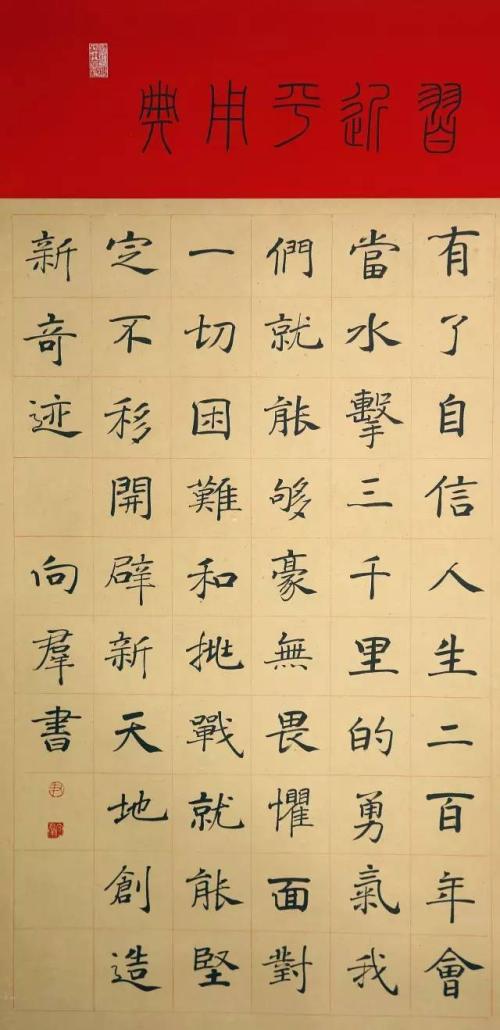 習近平用典
有了自信人生二百年會
當水擊三千里的勇氣我
們就能够豪無畏懼面對
一切困難和挑戰就能堅
定不移開辟新天地創造
新奇迹
向羣書